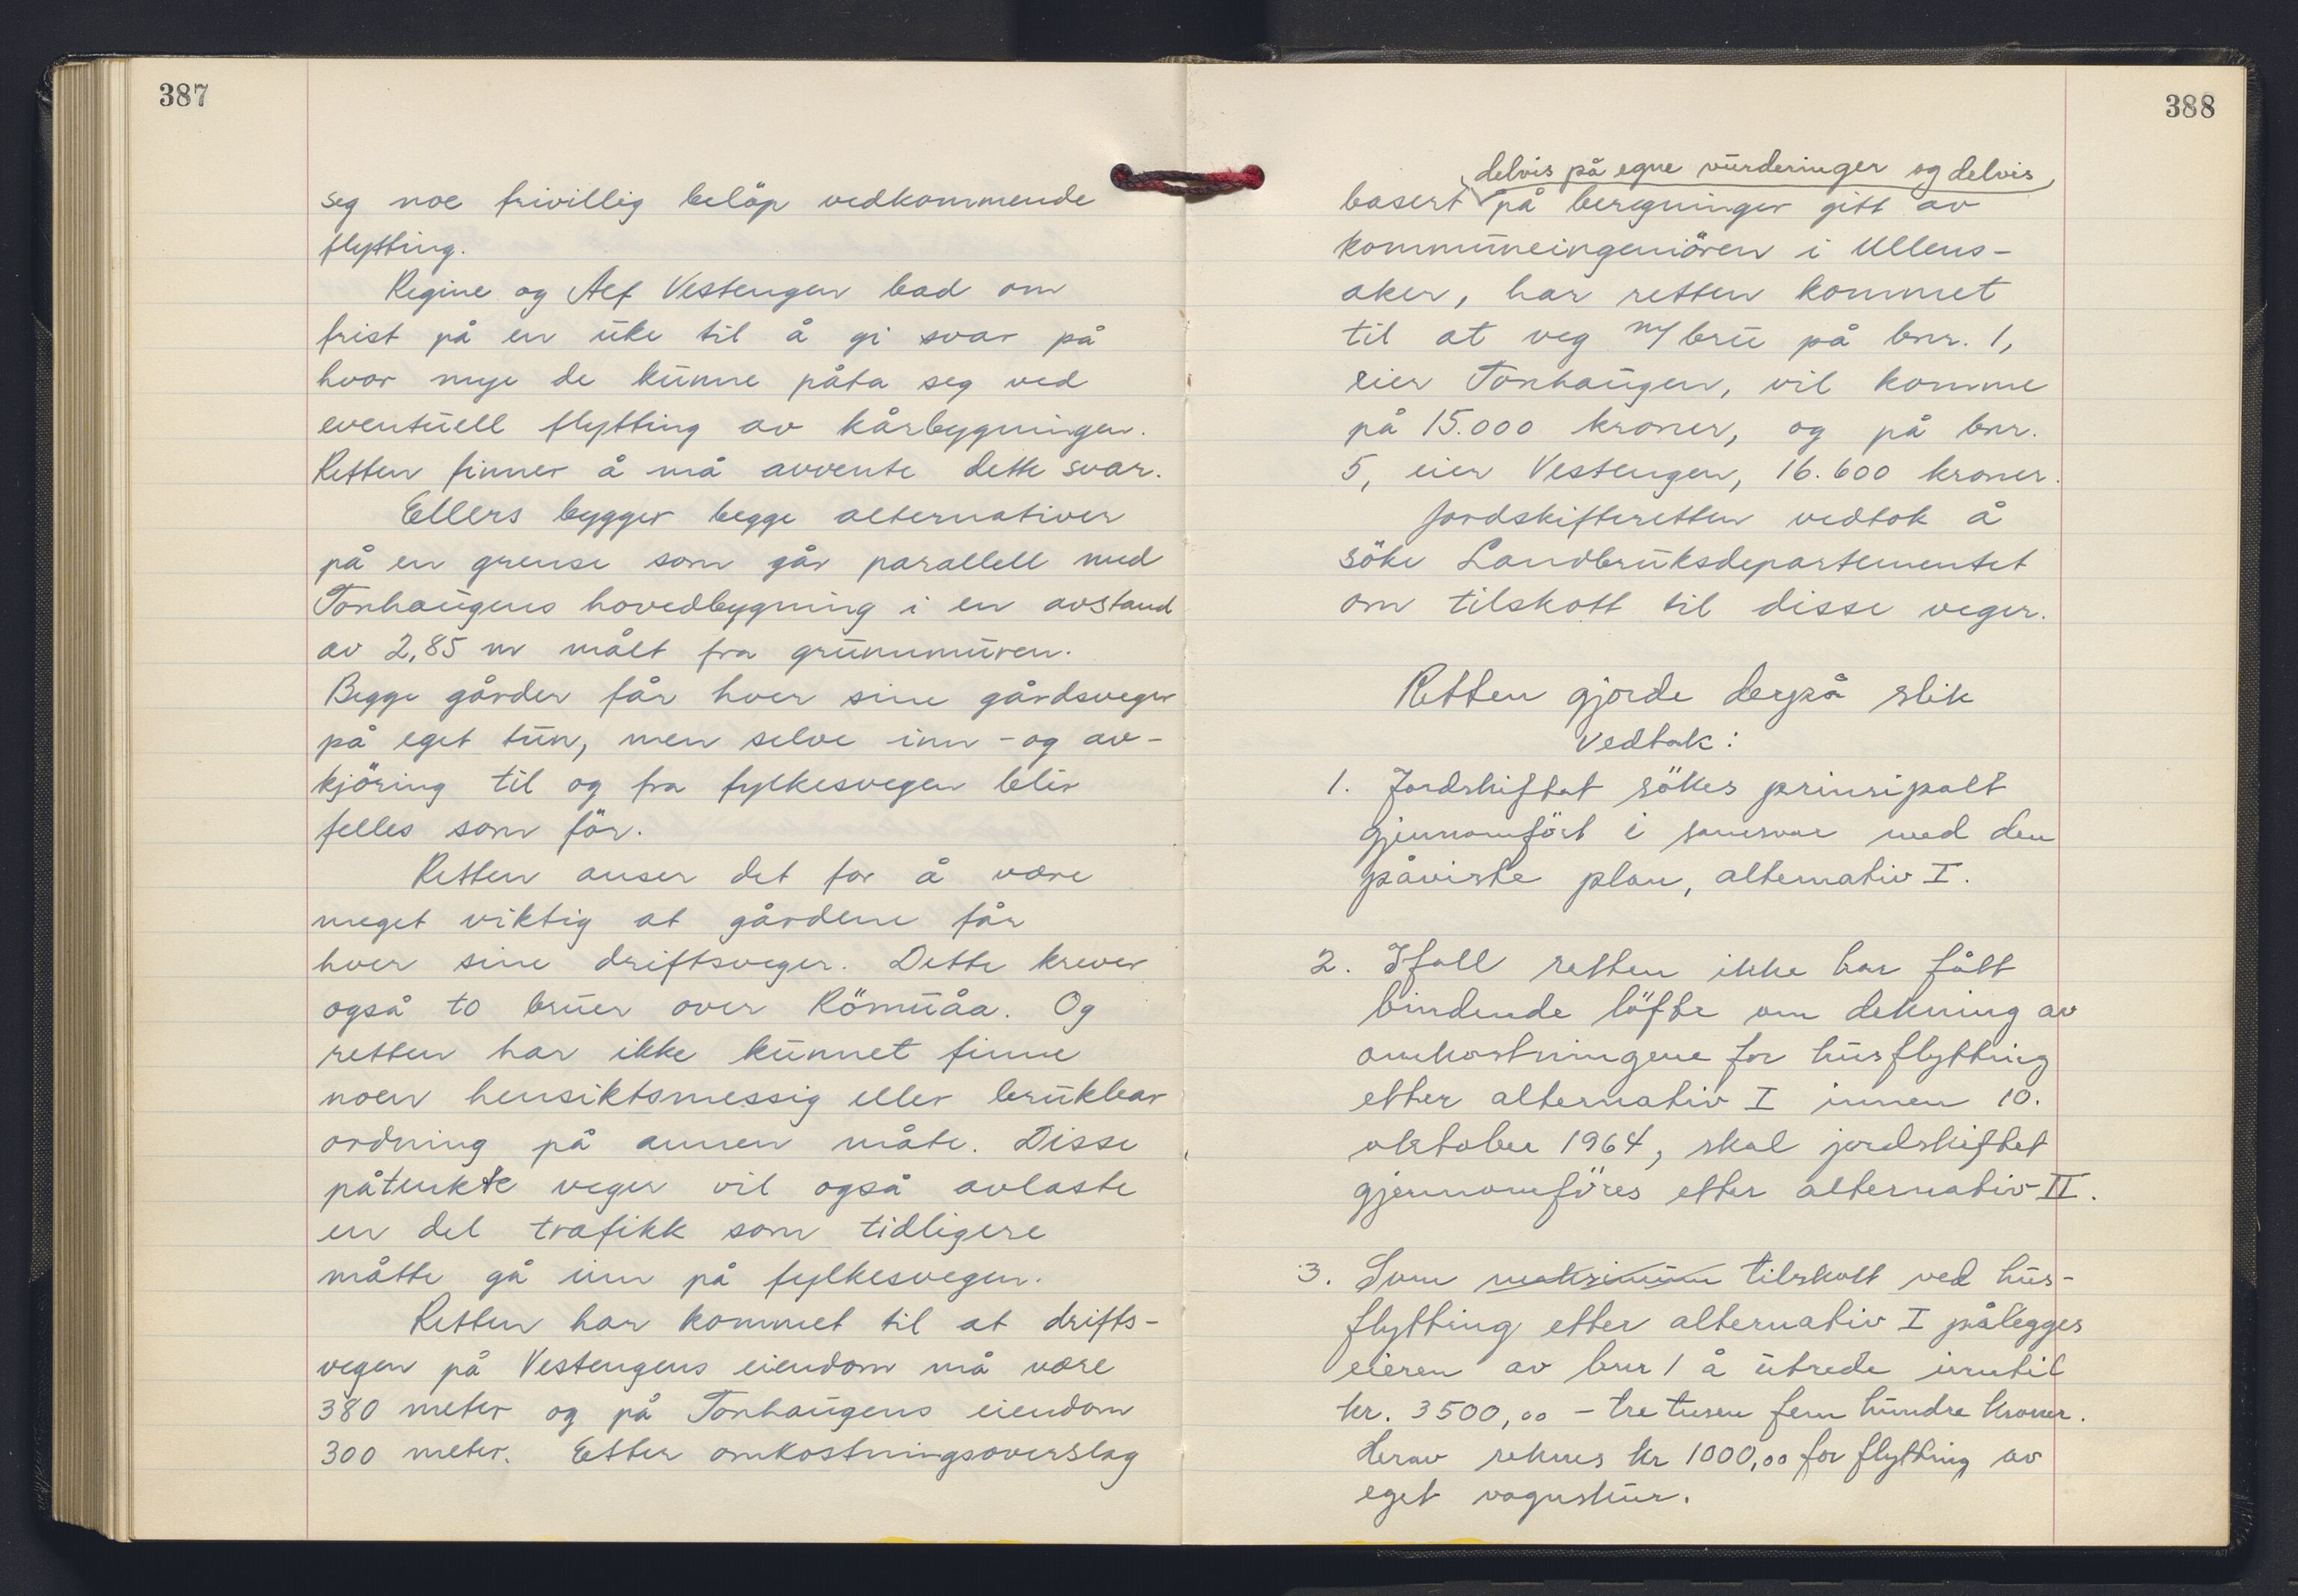 387
seg noe frivillig beløp vedkommende
flytting.
Regine og Alf Vestengen bad om
frist på en uke til å gi svar på
hvor mye de kunne påta seg ved
eventuell flytting av kårbygningen.
Retten finner å må avvente dette svar.
Ellers bygger begge alternativer
på en grense som går parallell med
Tonhaugens hovedbygning i en avstand
av 2,85 m målt fra grunnmuren.
Begge gårder får hver sine gårdsveger
på eget tun, men selve inn- og av-
kjöring til og fra fylkesvegen blir
felles som för.
Retten anser det for å være
meget viktig at gårdene får
hver sine driftsveger. Dette krever
også to bruer over Römuåa. Og
retten har ikke kunnet finne
noen hensiktsmessig eller brukbar
ordning på annen måte. Disse
påtenkte veger vil også avlaste
en del trafikk som tidligere
måtte gå inn på fylkesvegen.
Retten har kommet til at drifts-
vegen på Vestengens eiendom må være
380 meter og på Tonhaugens eiendom
300 meter. Etter omkostningsoverslag
388
delvis på egne vurderinger og delvis
basert på beregninger gitt av
kommuneingeniören i Ullens-
aker, har retten kommet
til at veg m/ bru på bnr. 1,
eier Tonhaugen, vil komme
på 15.000 kroner, og på bnr.
5, eier Vestengen, 16.600 kroner.
Jordskifteretten vedtok å
söke Landbruksdepartementet
om tilskott til disse veger.
Retten gjorde derpå slik
Vedtak:
1. Jordskiftet sökes prinsipalt
gjennomfört i samsvar med den
påviste plan, alternativ I.
2. Ifall retten ikke har fått
bindende löfte om dekning av
omkostningene for husflytting
etter alternativ I innen 10.
oktober 1964, skal jordskiftet
gjennomföres etter alternativ II.
3. Som maksimum tilskott ved hus-
flytting etter alternativ I pålegges
eieren av bnr 1 å utrede inntil
kr. 3500,00 - tre tusen fem hundre kroner.
Herav reknes kr 1000,00 for flytting av
eget vognskur.